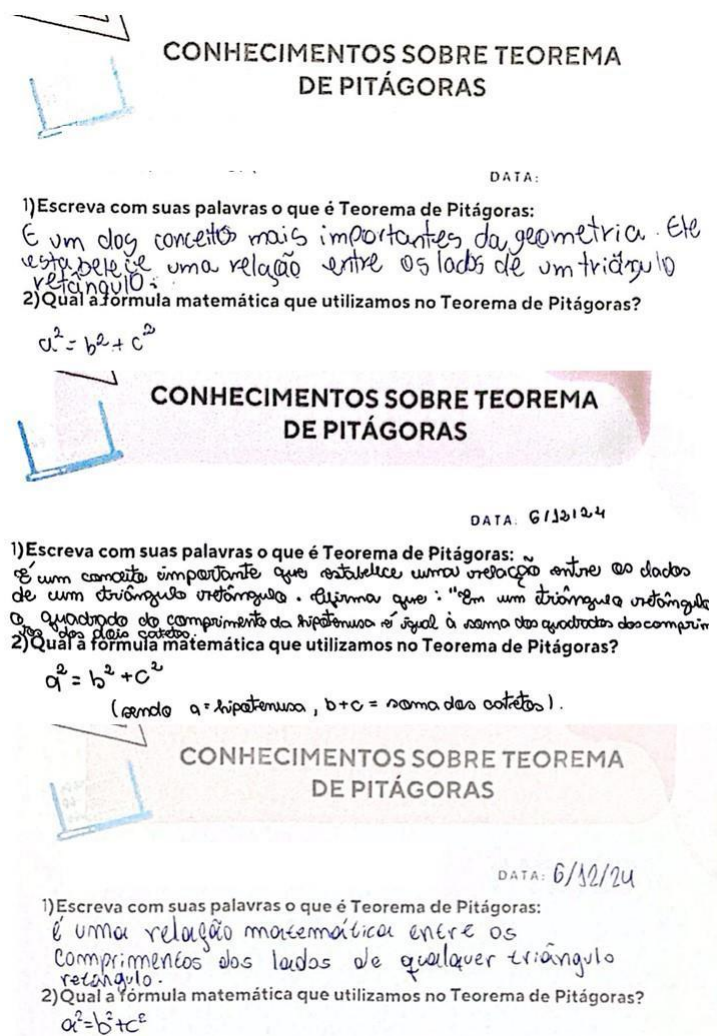 CONHECIMENTOS SOBRE TEOREMA
DE PITÁGORAS
DATA:
1)Escreva com suas palavras o que é Teorema de Pitágoras:
É um dos conceitos mais importantes da geometria. Ele
estabelece uma relação entre os lados de um triângulo
retângulo.
2)Qual a fórmula matemática que utilizamos no Teorema de Pitágoras?
a² = b² + c²
CONHECIMENTOS SOBRE TEOREMA
DE PITÁGORAS
DATA. 6/12/24
1)Escreva com suas palavras o que é Teorema de Pitágoras:
É um conceito importante que estabelece uma relação entre os dados
de um triângulo retângulo. Afirma que: "Em um triângulo retângulo
o quadrado do comprimento da hipotenusa é igual à soma dos quadrados dos comprim
tos dos dois catetos.
2)Qual a fórmula matemática que utilizamos no Teorema de Pitágoras?
a² = b² + c²
(sendo a = hipotenusa, b+c = soma dos catetos).
CONHECIMENTOS SOBRE TEOREMA
DE PITÁGORAS
DATA: 6/12/24
1)Escreva com suas palavras o que é Teorema de Pitágoras:
é uma relação matemática entre os
comprimentos dos lados de qualquer triângulo
retângulo.
2)Qual a fórmula matemática que utilizamos no Teorema de Pitágoras?
a²=b²+c²